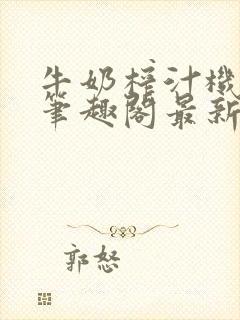 牛奶榨汁機
筆趣閣最新
郭怒